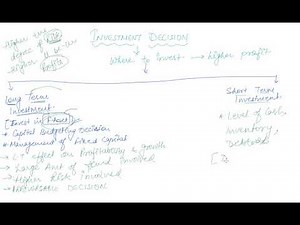 INVESTMENT DECISION
Where to Invest → Higher profits
Higher the
degree of Risk
Higher
Profits
Long Term
Investment
[Invest in Fixed]
* Capital Budgeting Decision
* Management of Fixed Capital
L-T effect on Profitability & Growth
Large Amt of fund Involved
Higher Risk involved
IRREVERSIBLE DECISION
Short Term
Investment
Level of Cash,
Inventory,
Debtors